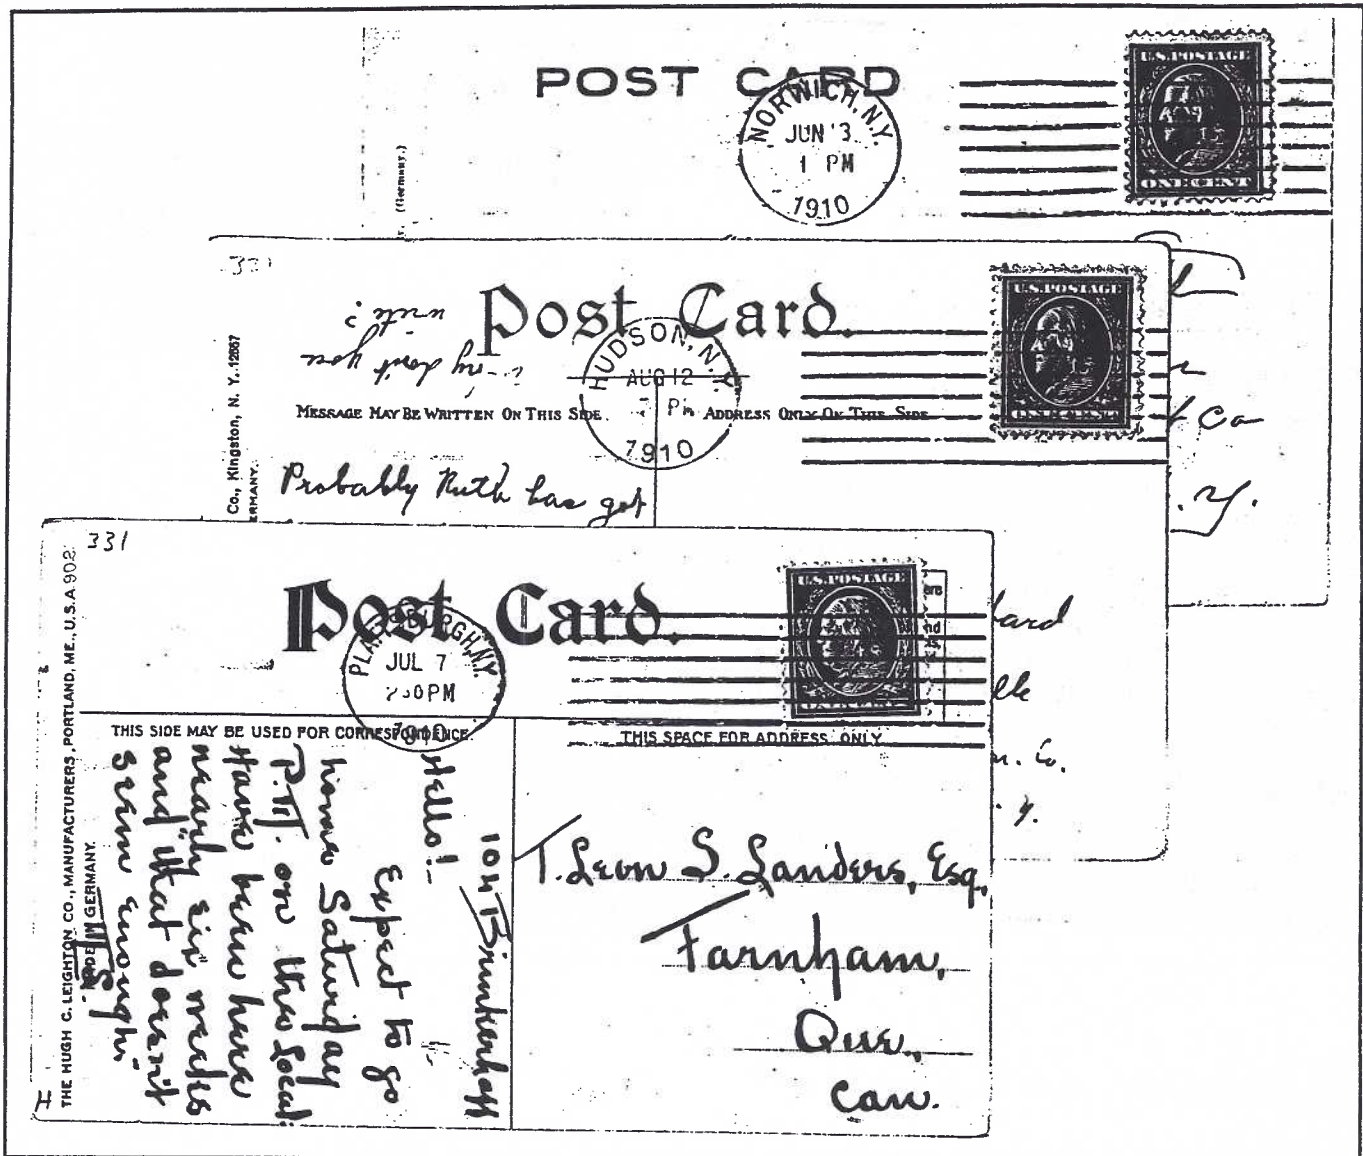 POST CARD
NORWICH, N.Y.
JUN 3
1 PM
1910
U.S. POSTAGE
ONE CENT
(Germany.)
331
Post Card.
why don't you
write?
HUDSON, N.Y.
AUG 12
PM
1910
U.S. POSTAGE
ONE CENT
MESSAGE MAY BE WRITTEN ON THIS SIDE.
ADDRESS ONLY ON THIS SIDE
Co., Kingston, N. Y. 12667
ERMANY.
Probably Ruth has got
Co
. Y.
331
Post Card.
PLATTSBURGH, N.Y.
JUL 7
30 PM
1910
U.S. POSTAGE
ers
nd
THIS SIDE MAY BE USED FOR CORRESPONDENCE.
THIS SPACE FOR ADDRESS ONLY
THE HUGH C. LEIGHTON CO., MANUFACTURERS, PORTLAND, ME., U.S.A.
MADE IN GERMANY.
104 Brinkerhoff
Hello!
Expect to go
home Saturday
P.M. on the Local.
Have been here
nearly six weeks
and "that doesn't
seem enough."
T. Leon S. Landers, Esq.,
Farnham,
Que.,
Can.
ard
lle
n. Co.
. Y.
H